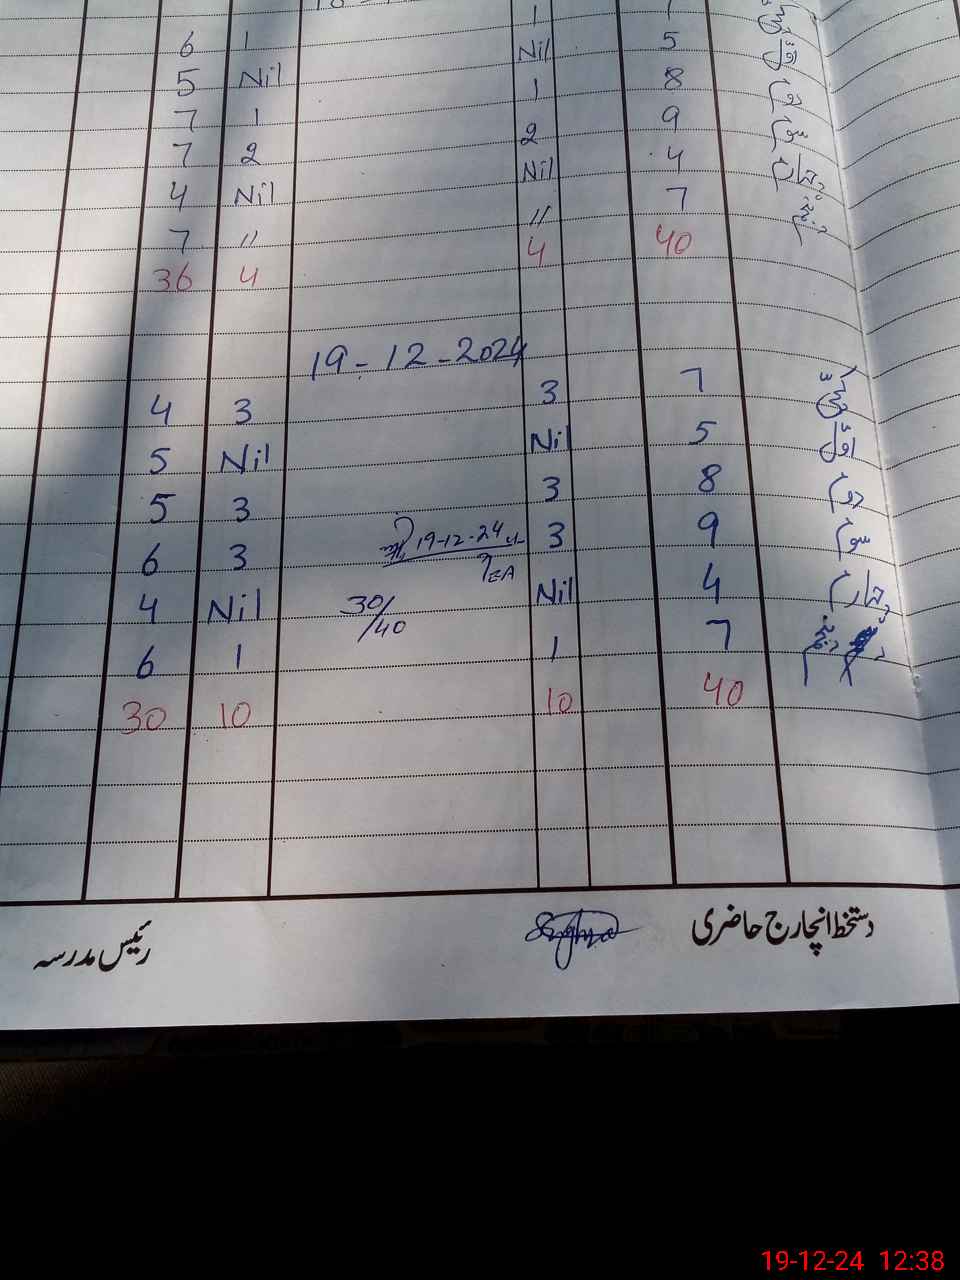 1 7
6 1 Nil 5 اول
5 Nil 1 8 دوم
7 1 2 9 سوم
7 2 Nil 4 چہارم
4 Nil 〃 7 پنجم
7 〃 4 40
36 4
19-12-2024
4 3 3 7
5 Nil Nil 5 اول
5 3 3 8 دوم
6 3 19-12-24 3 9 سوم
4 Nil 30/40 Nil 4 چہارم
6 1 1 7 پنجم
30 10 10 40
رئیس مدرسہ دستخط انچارج حاضری
19-12-24 12:38